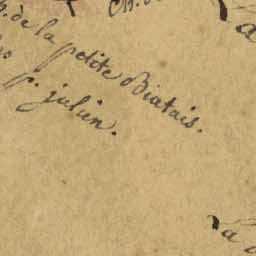 p. de la petite Biatais.
p. julien.